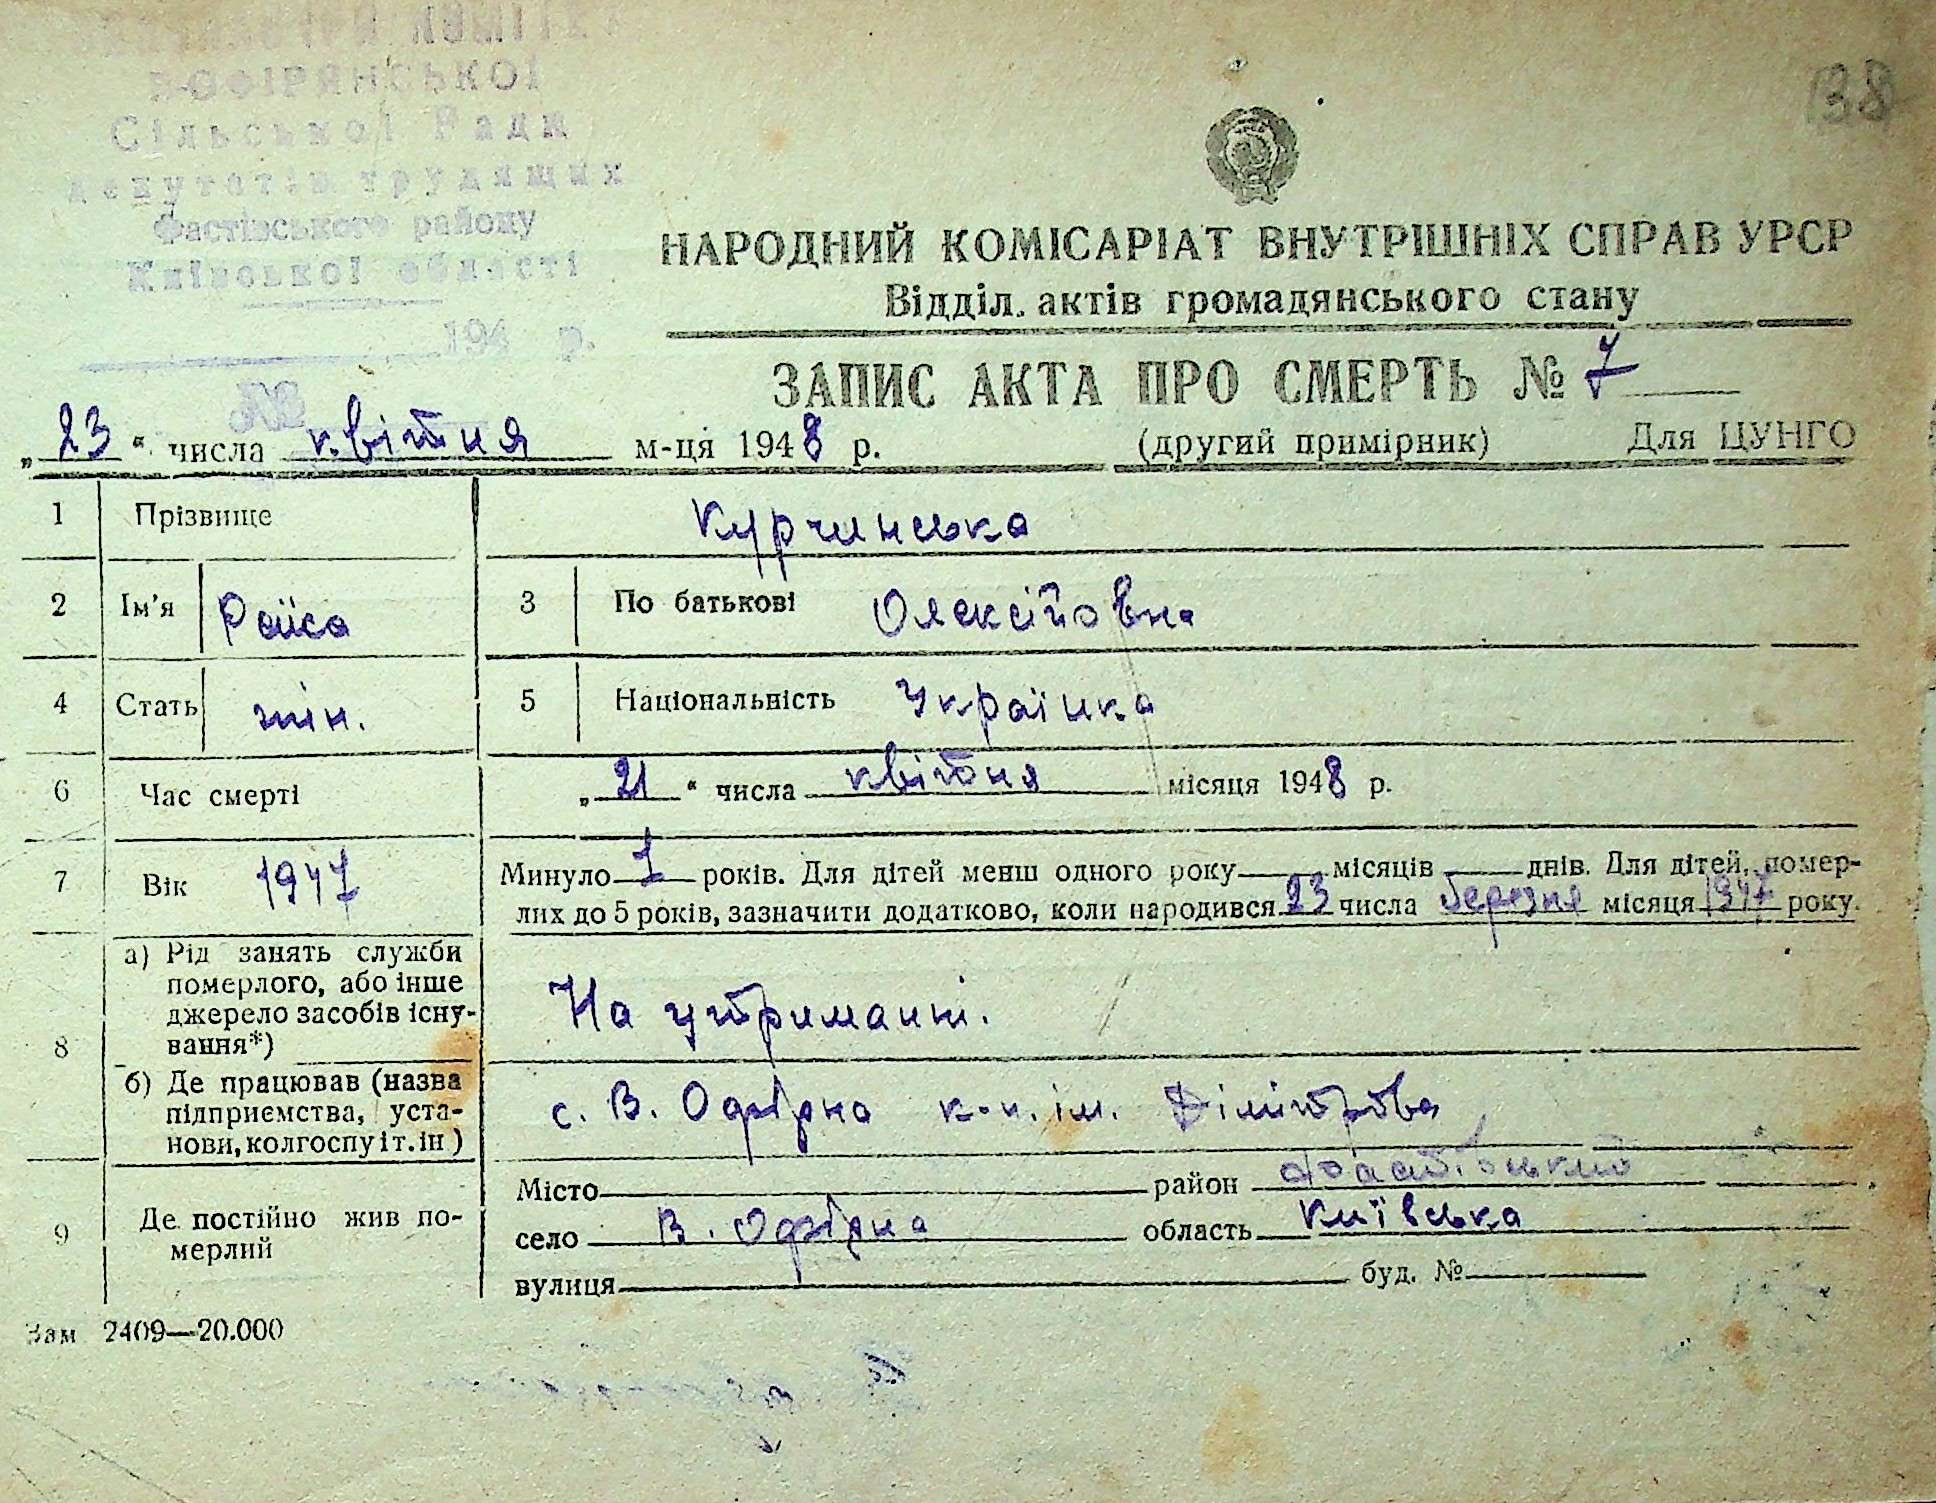 138
В-ОФІРЯНСЬКОЇ
Сільської Ради
депутатів трудящих
Фастівського району
Київської області
194 р.
№
НАРОДНИЙ КОМІСАРІАТ ВНУТРІШНІХ СПРАВ УРСР
Відділ актів громадянського стану
ЗАПИС АКТА ПРО СМЕРТЬ № 7
„23“ числа квітня м-ця 1948 р. (другий примірник) Для ЦУНГО
1 Прізвище Курчинська
2 Ім'я Раїса 3 По батькові Олексійовна
4 Стать жін. 5 Національність Українка
6 Час смерті „21“ числа квітня місяця 1948 р.
7 Вік 1947 Минуло 1 років. Для дітей менш одного року — місяців — днів. Для дітей, помер-
лих до 5 років, зазначити додатково, коли народився 23 числа березня місяця 1947 року.
8 а) Рід занять служби
померлого, або інше
джерело засобів існу-
вання*)
На утриманні.
б) Де працював (назва
підприємства, уста-
нови, колгоспу і т. ін)
с. В. Офірна к-п. ім. Дімітрова
9 Де постійно жив по-
мерлий
Місто район Фастівський
село В. Офірна область Київська
вулиця буд. №
Зам 2409—20.000